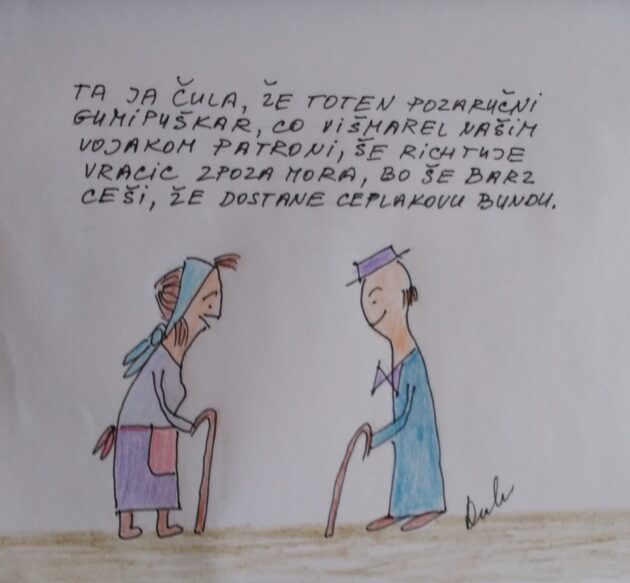 TA JA ČULA, ŽE TOTEN POZARUČNI
GUMIPUŠKAR, CO VIŠMAREL NAŠIM
VOJAKOM PATRONI, ŠE RICHTUJE
VRACIC ZPOZA MORA, BO ŠE BARZ
CEŠI, ŽE DOSTANE CEPLAKOVU BUNDU.